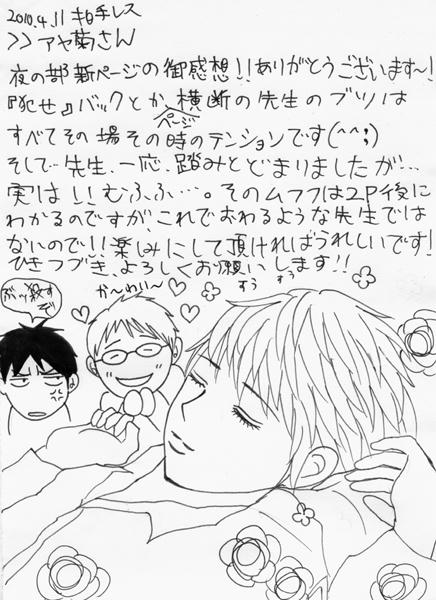 2010.4.11 拍手レス
>>アヤ菊さん
夜の部新ページの御感想!!ありがとうございます〜!
『犯せ』バックとか、ページ横断の先生のブツは
すべてその場その時のテンションです(^^;)
そして…先生、一応、踏みとどまりましたが…
実は!!むふふ…。そのムフフは2P後に
わかるのですが、これでおわるような先生では
ないので!!楽しみにして頂ければうれしいです!
ひきつづき、よろしくお願いします!!
ぶッ殺すぞ
か〜わい〜
すう
すう